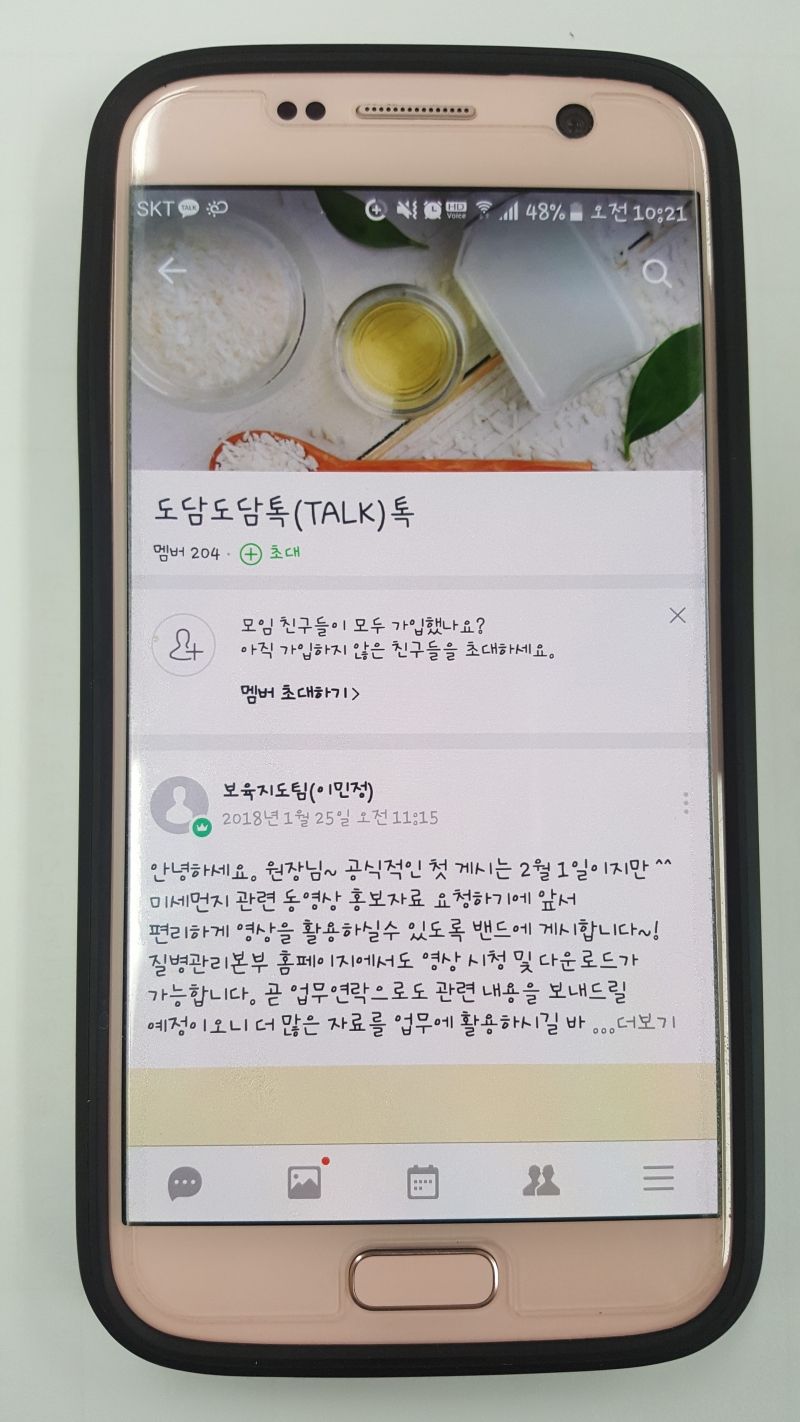 SKT TALK HD Voice 48% 오전 10:21
도담도담톡(TALK)톡
멤버 204 · 초대
모임 친구들이 모두 가입했나요?
아직 가입하지 않은 친구들을 초대하세요.
멤버 초대하기 >
보육지도팀(이민정)
2018년 1월 25일 오전 11:15
안녕하세요. 원장님~ 공식적인 첫 게시는 2월 1일이지만 ^^
미세먼지 관련 동영상 홍보자료 요청하기에 앞서
편리하게 영상을 활용하실수 있도록 밴드에 게시합니다~!
질병관리본부 홈페이지에서도 영상 시청 및 다운로드가
가능합니다. 곧 업무연락으로도 관련 내용을 보내드릴
예정이오니 더 많은 자료를 업무에 활용하시길 바 ...더보기